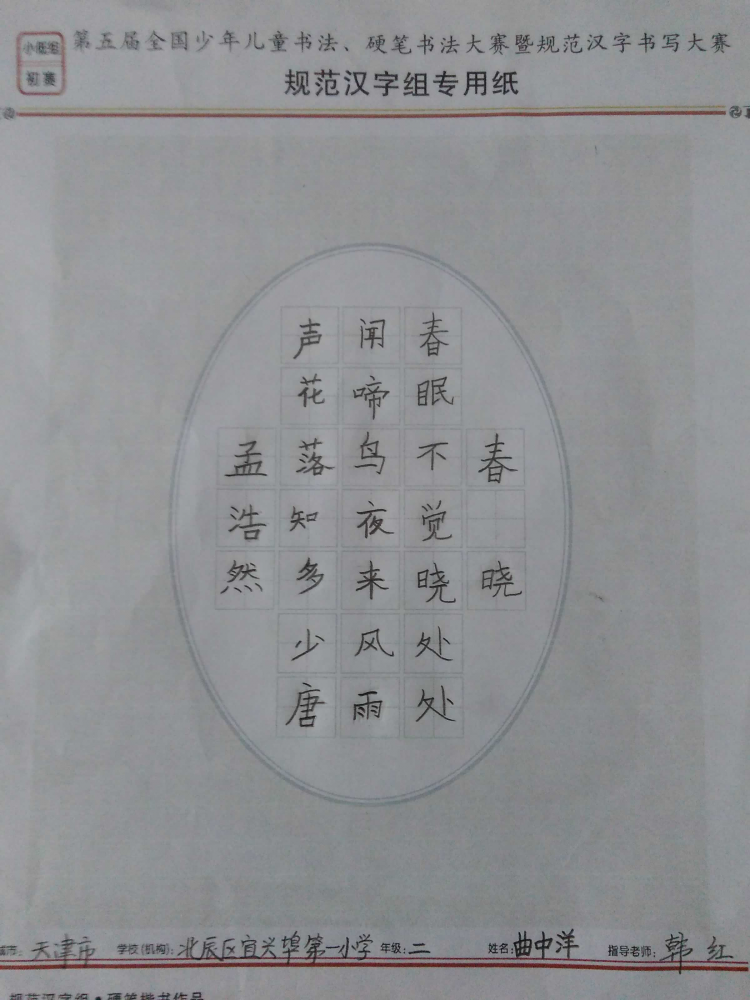 小低组
初赛
第五届全国少年儿童书法、硬笔书法大赛暨规范汉字书写大赛
规范汉字组专用纸
春晓
春眠不觉晓处处
闻啼鸟夜来风雨
声花落知多少唐
孟浩然
城市: 天津市 学校(机构): 北辰区宜兴埠第一小学 年级: 二 姓名: 曲中洋 指导老师: 韩红
规范汉字组·硬笔楷书作品